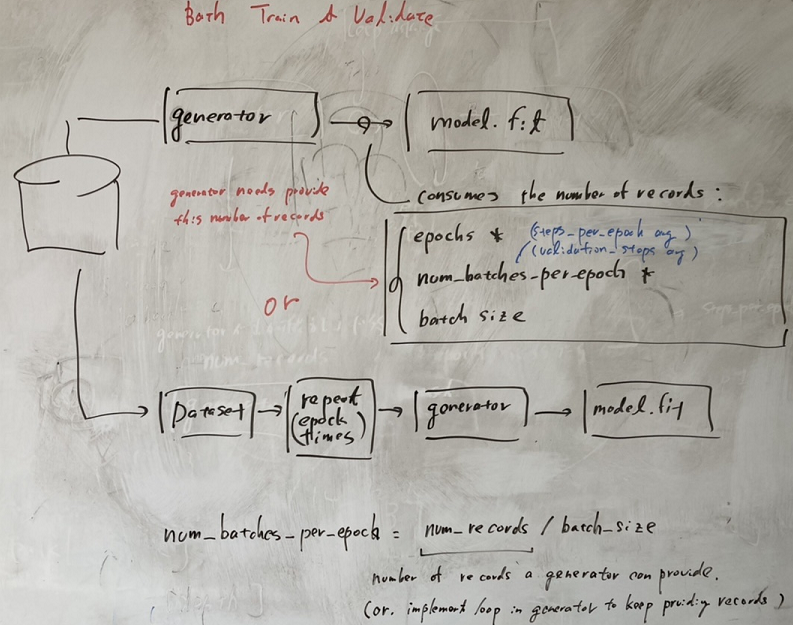 Both Train & Validate
generator
model.fit
generator needs provide
this number of records
consumes the number of records :
epochs * (steps_per_epoch arg)
(validation_steps arg)
num_batches_per_epoch *
batch size
or
Dataset
repeat
(epoch
times)
generator
model.fit
num_batches_per_epoch = num_records / batch_size
number of records a generator can provide.
(or. implement loop in generator to keep providing records)